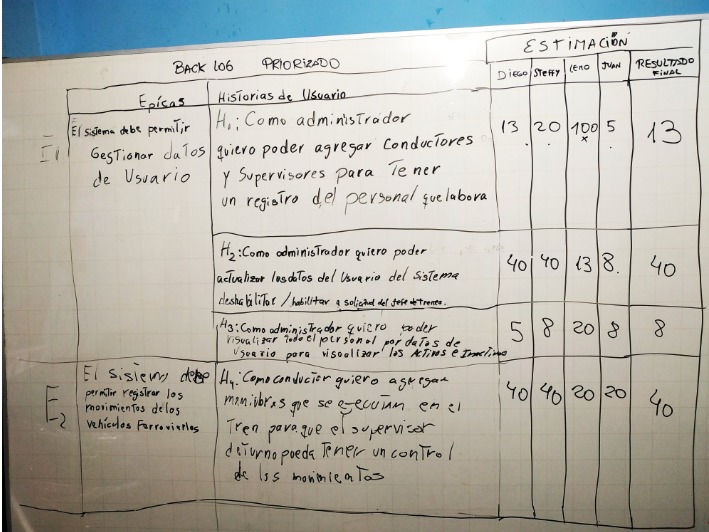 BACK LOG PRIORIZADO
ESTIMACIÓN
DIEGO STEFFY LENO JUAN RESULTADO FINAL
Epícas Historias de Usuario
E1
El sistema debe permitir
Gestionar datos
de Usuario
H1: Como administrador
quiero poder agregar Conductores
y Supervisores para Tener
un registro del personal que labora
13 20 100 5 13
x
H2: Como administrador quiero poder
actualizar los datos del Usuario del Sistema
deshabilitar / habilitar a solicitud del Jefe de trenes.
40 40 13 8. 40
H3: Como administrador quiero poder
visualizar todo el personal por datos de
Usuario para visualizar los Activos e Inactivos
5 8 20 8 8
E2
El Sistema debe
permitir registrar los
movimientos de los
Vehículos Ferroviarios
H4: Como conductor quiero agregar
maniobras que se ejecutan en el
Tren para que el supervisor
de turno pueda Tener un control
de los movimientos
40 40 20 20 40